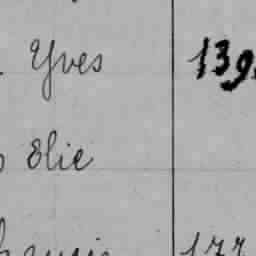 Yves 139
Elie
177